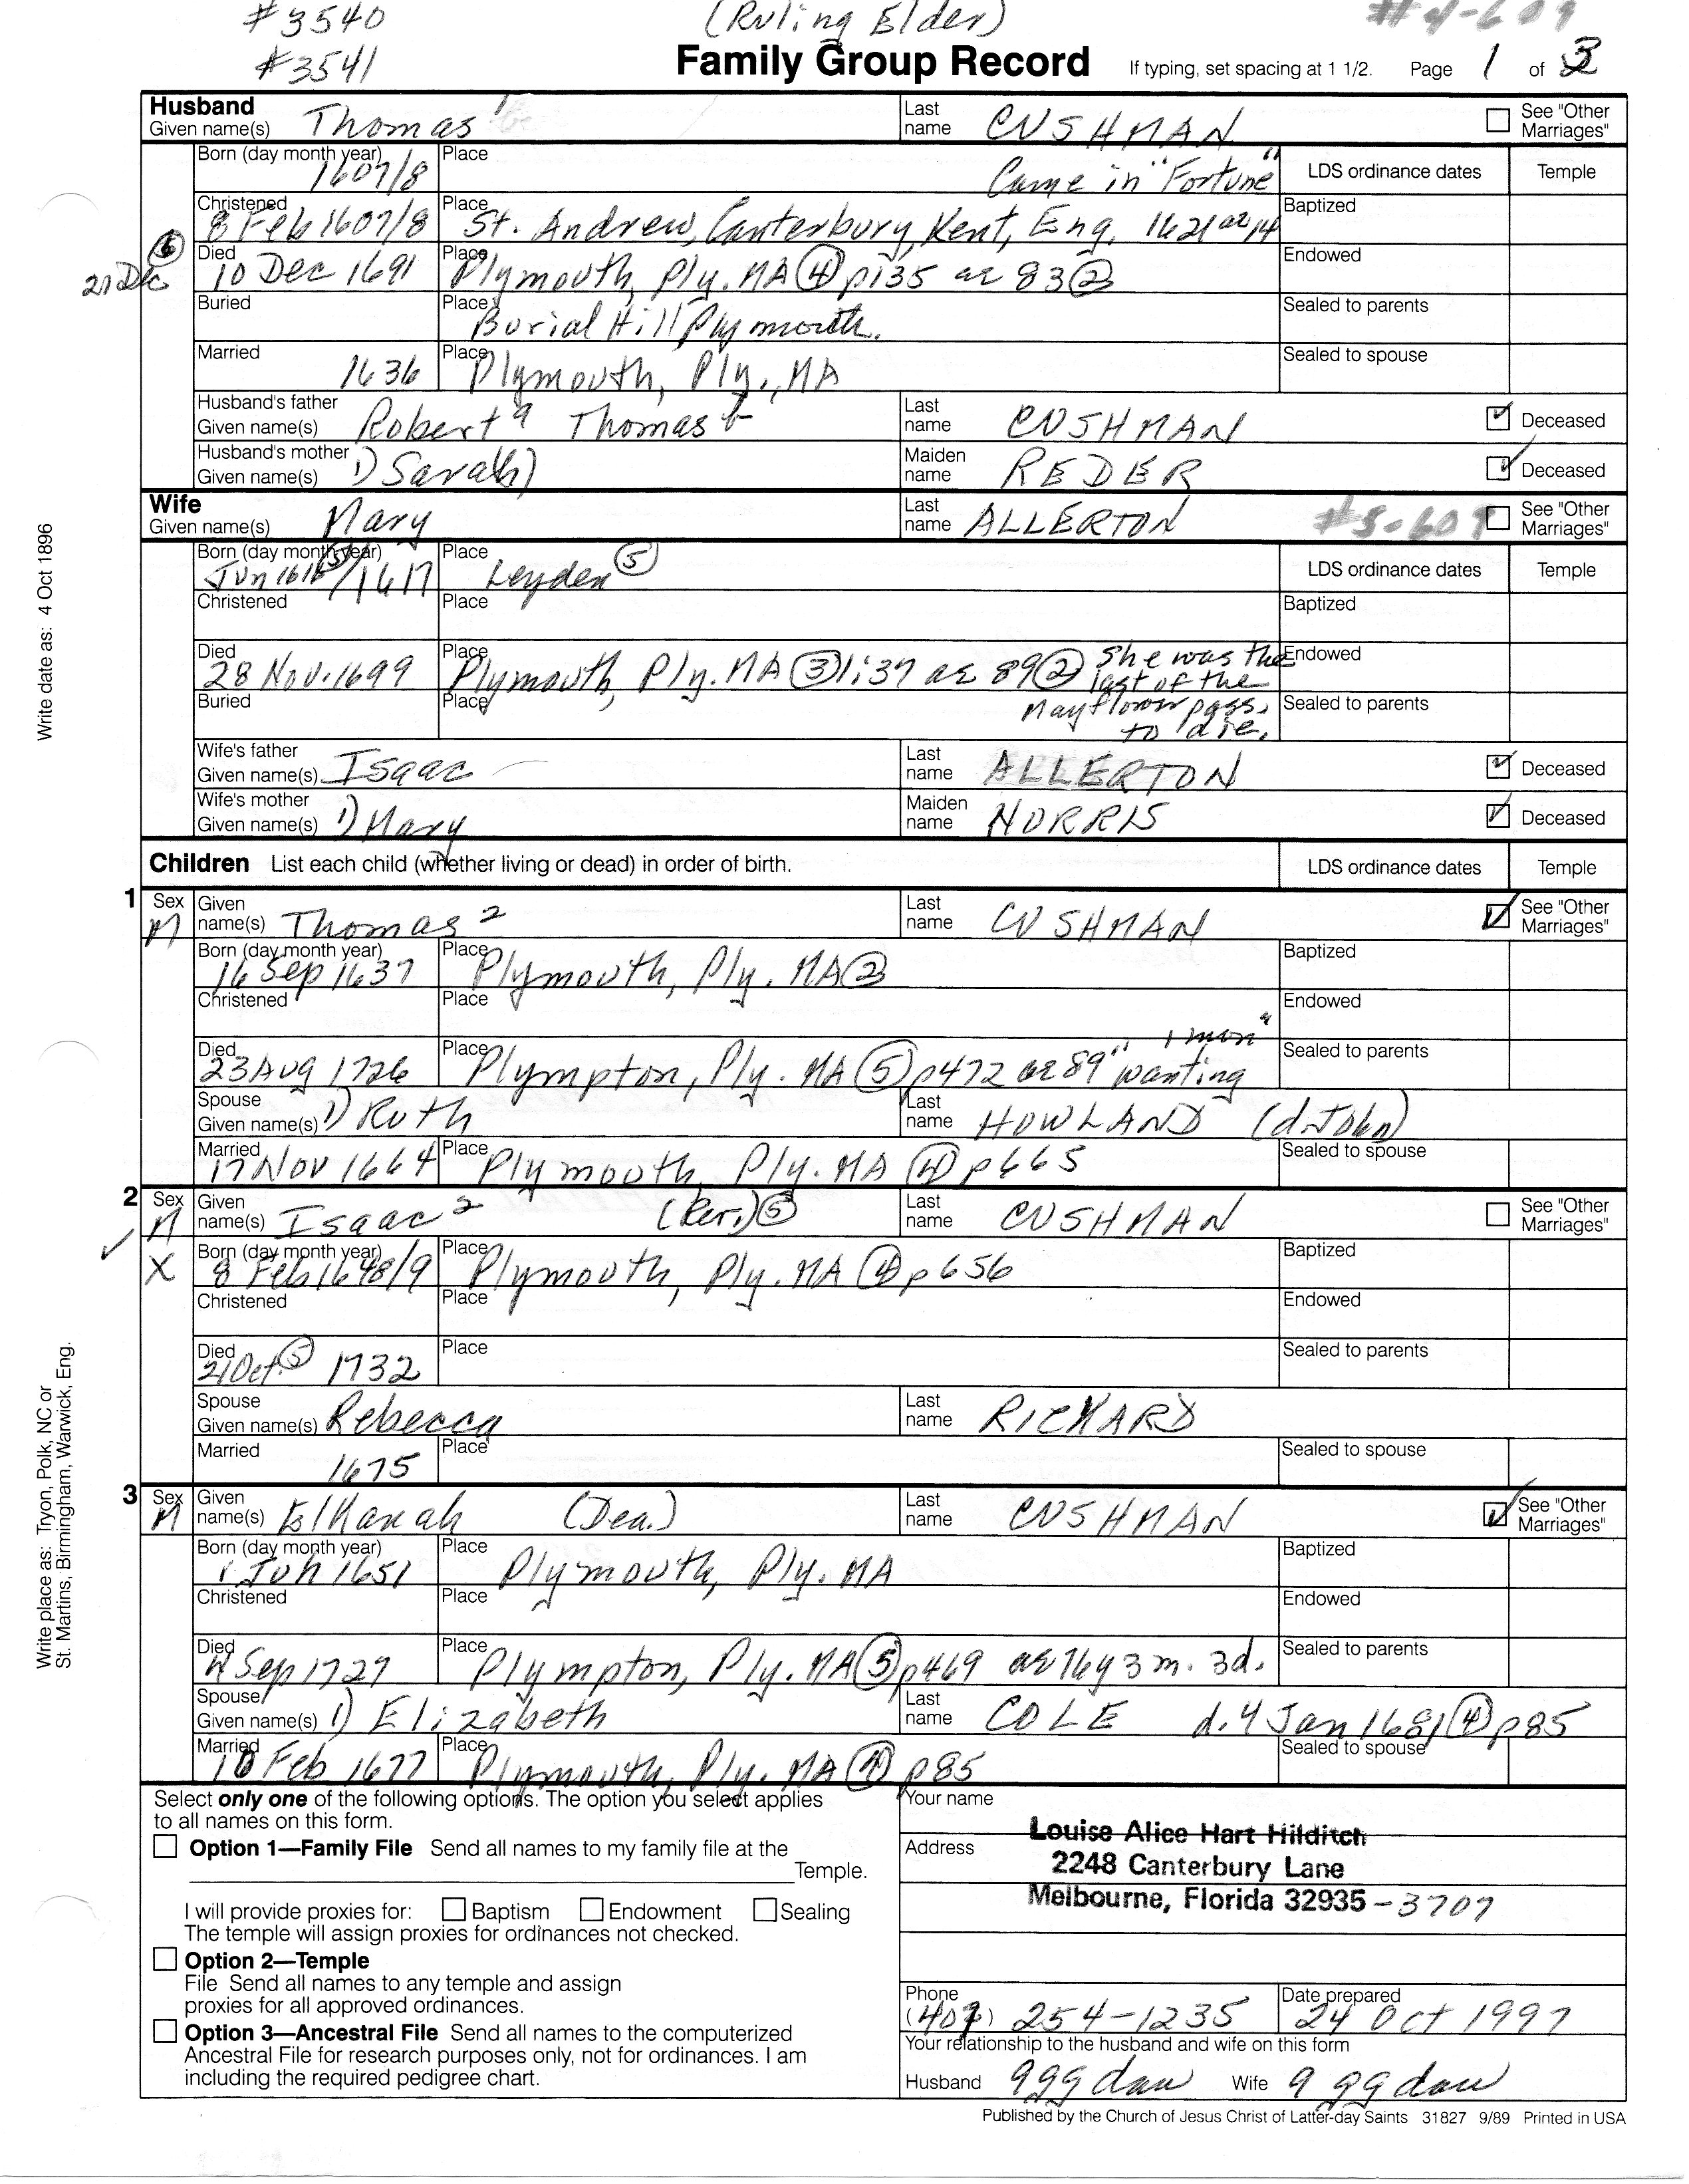 #3540 (Ruling Elder) #4-609
#3541 Family Group Record If typing, set spacing at 1 1/2. Page 1 of 3
Husband
Given name(s) Thomas 1 Last name CUSHMAN See "Other Marriages"
Born (day month year) 1607/8 Place Came in "Fortune" LDS ordinance dates Temple
Christened 8 Feb 1607/8 Place St. Andrew, Canterbury, Kent, Eng. 1621 ae 14 Baptized
21 Dec (6) Died 10 Dec 1691 Place Plymouth, Ply. MA (4) p135 ae 83 (2) Endowed
Buried Place Burial Hill Plymouth. Sealed to parents
Married 1636 Place Plymouth, Ply., MA Sealed to spouse
Husband's father Given name(s) Robert a Thomas b Last name CUSHMAN Deceased
Husband's mother Given name(s) 1) Sarah) Maiden name REDER Deceased
Wife
Given name(s) Mary Last name ALLERTON #5-609 See "Other Marriages"
Born (day month year) Jun 1616 (5)/1617 Place Leyden (5) LDS ordinance dates Temple
Christened Place Baptized
Died 28 Nov. 1699 Place Plymouth, Ply. MA (3) 1:37 ae 89 (2) She was the last of the Mayflower pass. to die. Endowed
Buried Place Sealed to parents
Wife's father Given name(s) Isaac Last name ALLERTON Deceased
Wife's mother Given name(s) 1) Mary Maiden name NORRIS Deceased
Children List each child (whether living or dead) in order of birth. LDS ordinance dates Temple
1 Sex M Given name(s) Thomas 2 Last name CUSHMAN See "Other Marriages"
Born (day month year) 16 Sep 1637 Place Plymouth, Ply. MA (2) Baptized
Christened Place Endowed
Died 23 Aug 1726 Place Plympton, Ply. MA (5) p472 ae 89 "wanting 1 mon" Sealed to parents
Spouse Given name(s) 1) Ruth Last name HOWLAND (d. John)
Married 17 Nov 1664 Place Plymouth, Ply. MA (4) p665 Sealed to spouse
2 Sex M Given name(s) Isaac 2 (Rev.) (5) Last name CUSHMAN See "Other Marriages"
X Born (day month year) 8 Feb 1648/9 Place Plymouth, Ply. MA (4) p656 Baptized
Christened Place Endowed
Died 21 Oct. (5) 1732 Place Sealed to parents
Spouse Given name(s) Rebecca Last name RICKARD
Married 1675 Place Sealed to spouse
3 Sex M Given name(s) Elkanah (Dea.) Last name CUSHMAN See "Other Marriages"
Born (day month year) 1 Jun 1651 Place Plymouth, Ply. MA Baptized
Christened Place Endowed
Died 4 Sep 1727 Place Plympton, Ply. MA (5) p469 ae 76y 3m. 3d. Sealed to parents
Spouse Given name(s) 1) Elizabeth Last name COLE d. 4 Jan 1681 (4) p85
Married 10 Feb 1677 Place Plymouth, Ply. MA (4) p85 Sealed to spouse
Select only one of the following options. The option you select applies
to all names on this form.
Option 1—Family File Send all names to my family file at the
Temple.
I will provide proxies for: Baptism Endowment Sealing
The temple will assign proxies for ordinances not checked.
Option 2—Temple
File Send all names to any temple and assign
proxies for all approved ordinances.
Option 3—Ancestral File Send all names to the computerized
Ancestral File for research purposes only, not for ordinances. I am
including the required pedigree chart.
Your name
Louise Alice Hart Hilditch
Address 2248 Canterbury Lane
Melbourne, Florida 32935-3707
Phone (407) 254-1235 Date prepared 24 Oct 1997
Your relationship to the husband and wife on this form
Husband 9ggdau Wife 9ggdau
Published by the Church of Jesus Christ of Latter-day Saints 31827 9/89 Printed in USA
Write date as: 4 Oct 1896
Write place as: Tryon, Polk, NC or
St. Martins, Birmingham, Warwick, Eng.